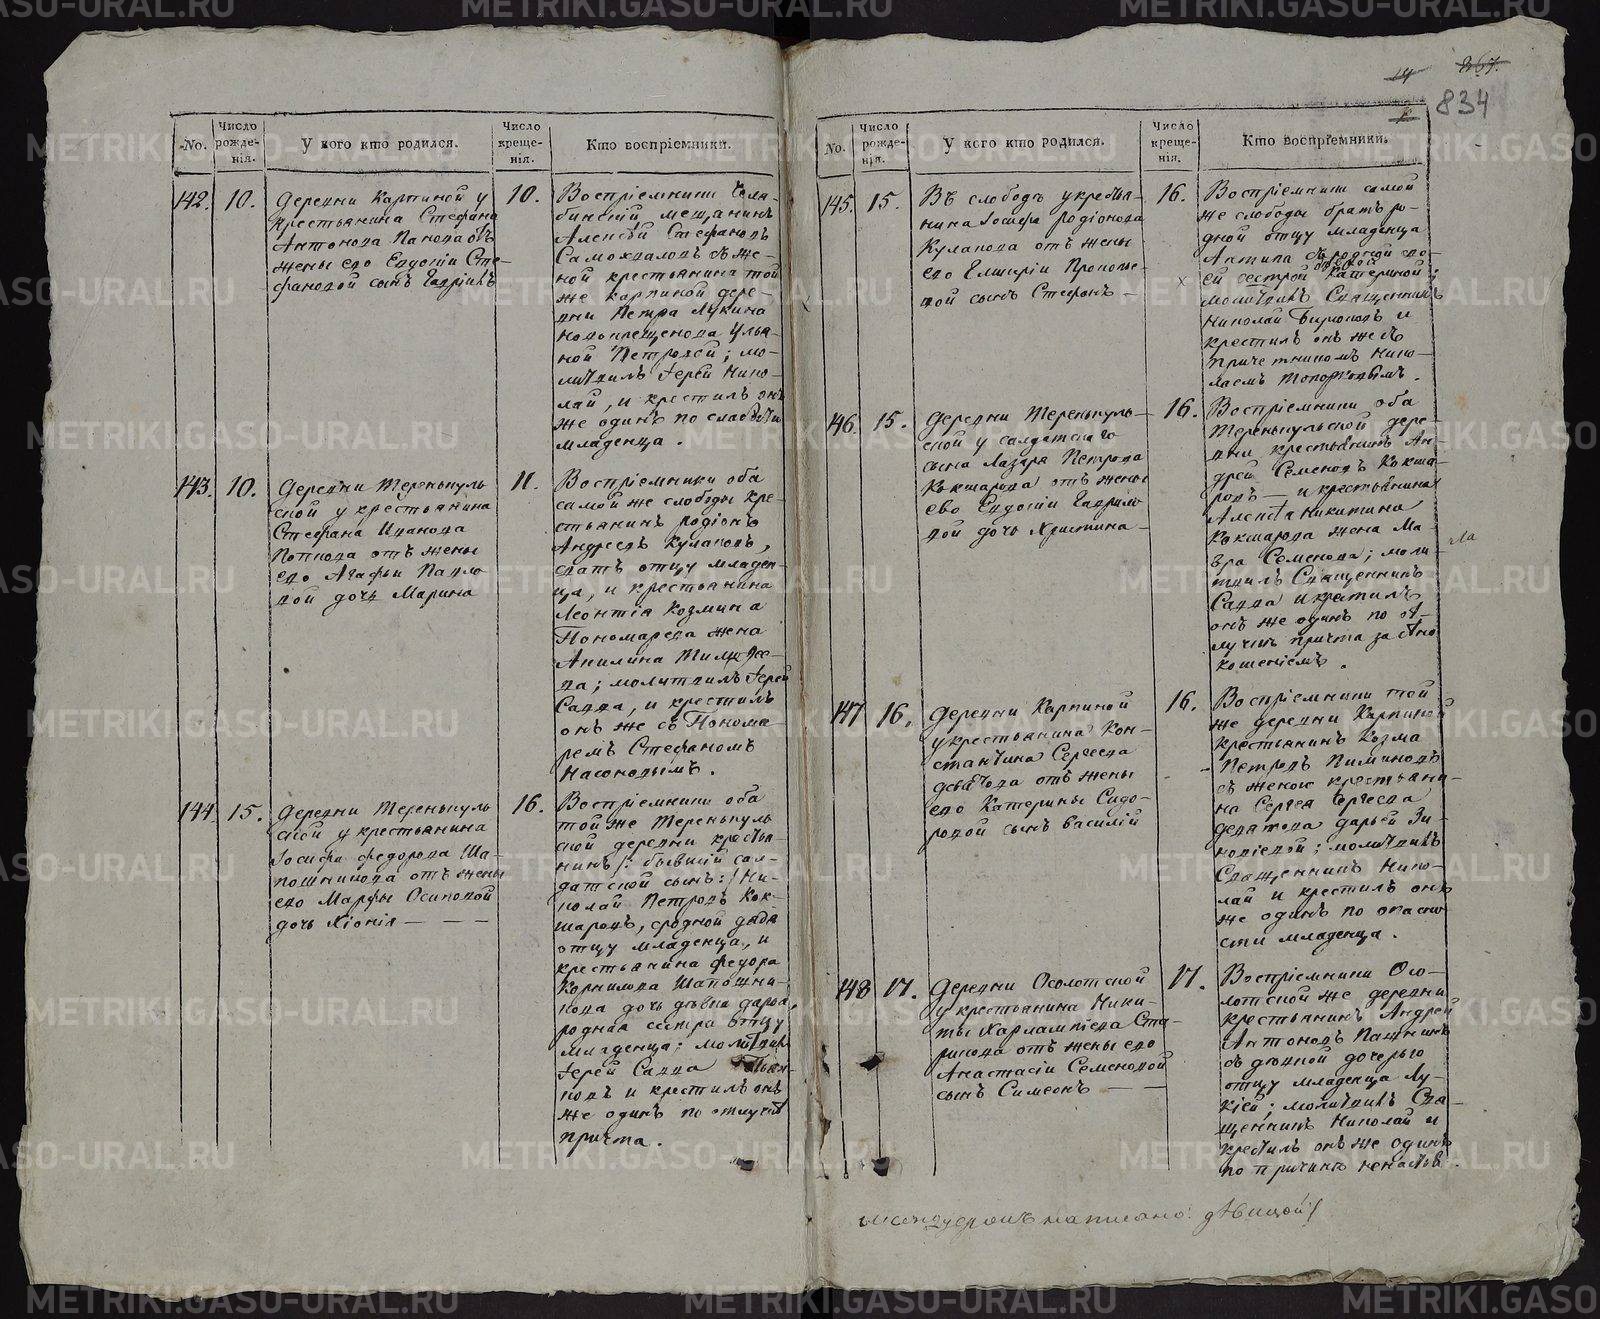 834
No.
Число рожде-нія.
У кого кто родился.
Число креще-нія.
Кто воспріемники.
142.
10.
Деревни Карпиной у
крестьянина Стефана
Антонова Панова отъ
жены его Евдокіи Сте-
фановой сынъ Гавріилъ
10.
Воспріемники Челя-
бинскій мещанинъ
Алексѣй Стефановъ
Самохваловъ съ же-
ной крестьянина той
же Карпиной дере-
вни Петра Лукина
Новокрещенова Улья-
ной Петровой; мо-
литвилъ Іерей Нико-
лай, и крестилъ онъ
же одинъ по слабости
младенца.
143.
10.
Деревни Теренькуль
ской у крестьянина
Стефана Иванова
отъ жены
его Агафьи Павло
вой дочь Марина
11.
Воспріемники оба
самой же слободы кре-
стьянинъ Родіонъ
Андреевъ Кулаковъ,
сватъ отцу младен-
ца, и крестьянина
Леонтія Козмина
Пономарева жена
Акилина
ва; молитвилъ Іерей
Савва, и крестилъ
онъ же съ Понома
ремъ Стефаномъ
Насоновымъ.
144
15.
Деревни Теренькуль
ской у крестьянина
Іосифа Федорова Ша-
пошникова отъ жены
его Марфы Осиповой
дочь Хіонія — — —
16.
Воспріемники оба
той же Теренькуль
ской деревни крестья-
нинъ /: бывшій сол-
датской сынъ :/ Ни-
колай Петровъ Кок-
шаровъ, сродной дядя
отцу младенца, и
крестьянина Федора
Корнилова Шапошни-
кова дочь дѣвка Дарья,
родная сестра отцу
младенца; молитвилъ
Іерей Савва
и крестилъ онъ
же одинъ по отлучкѣ
причта.
No.
Число рожде-нія.
У кого кто родился.
Число креще-нія.
Кто воспріемники.
145.
15.
Въ слободѣ у крестья-
нина Іосифа Родіонова
Кулакова отъ жены
его Гликеріи Прокопье-
вой сынъ Стефанъ —
16.
Воспріемники самой
же слободы братъ ро-
дной отцу младенца
Антипа съ родной сво-
ей сестрой Катериной;
молитвилъ Священникъ
Николай Бирюковъ и
крестилъ онъ же съ
причетникомъ Нико-
лаемъ Топорковымъ.
146.
15.
Деревни Теренькуль-
ской у салдатскаго
сына Лазаря Петрова
Кокшарова отъ жены
ево Евдокіи Гаврило
вой дочь Христина —
16.
Воспріемники оба
Теренькульской дере-
вни крестьянинъ Ан-
дрей Семеновъ Кокша-
ровъ — и крестьянина
Алексѣя Никитина
Кокшарова жена Ма-
вра Семенова; моли-
ла
твилъ Священникъ
Савва и крестилъ
онъ же одинъ по от-
лучкѣ причта за сѣно
кошеніемъ.
147
16.
Деревни Карпиной
у крестьянина Кон-
стантина Сергеева
Девятова отъ жены
его Катерины Сидо-
ровой сынъ Василій
16.
Воспріемники той
же деревни Карпиной
крестьянинъ Козма
Петровъ Пиминовъ
съ женою крестьяни-
на Сергея Сергеева
Девятова Дарьей Зи-
новіевой; молитвилъ
Священникъ Нико-
лай и крестилъ онъ
же одинъ по опасно
сти младенца.
148
17.
Деревни Осолотской
у крестьянина Ники-
ты Харлампіева Ста-
рикова отъ жены его
Анастасіи Семеновой
сынъ Симеонъ — —
17.
Воспріемники Осо-
лотской же деревни
крестьянинъ Андрей
Антоновъ Пашнинъ
съ родной дочерью
отцу младенца Лу-
кіей; молитвилъ Свя-
щенникъ Николай и
крестилъ онъ же одинъ
по причинѣ ненастья.
написано: дѣвицой/
METRIKI.GASO-URAL.RU